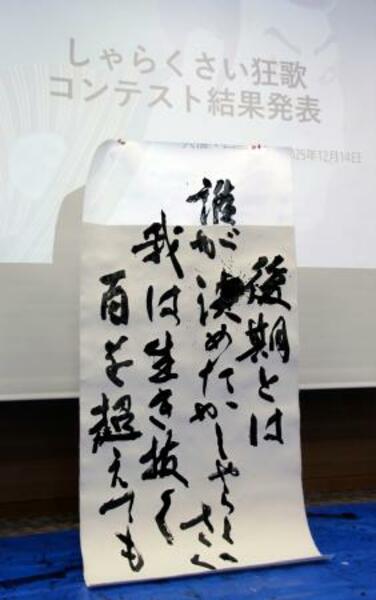 しゃらくさい狂歌
コンテスト結果発表
025年12月14日
後期とは
誰が決めたかしゃらくさく
我は生き抜く
百を超えても